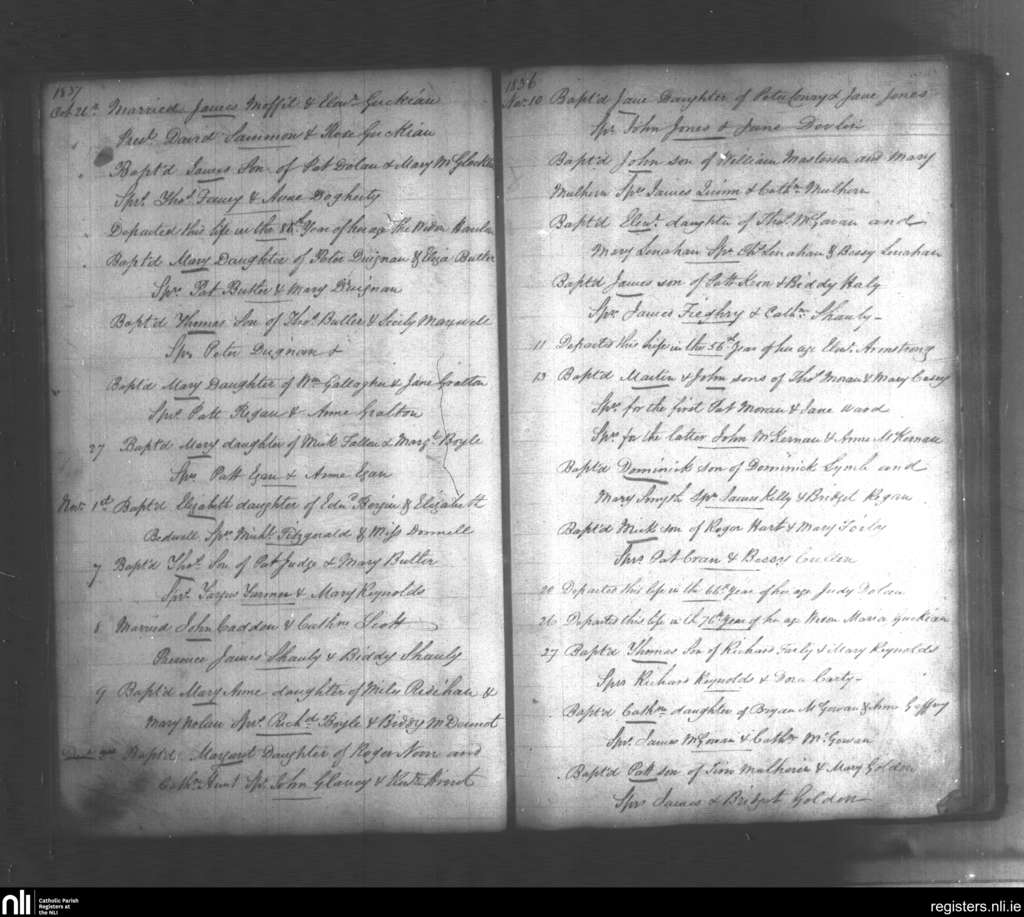 1837
Oct 26th Married James Moffit & Elenr. Guckian
Presnt. David Sammon & Rose Guckian
Bapt'd James Son of Pat Dolan & Mary McGlochlin
Sprs. Thos. Fauey & Anne Dogherty
Departed this life in the 88th Year of her age The Widow
Bapt'd Mary Daughter of Peter Duignan & Eliza Butler
Sprs. Pat Butler & Mary Duignan
Bapt'd Thomas Son of Thos. Butler & Sicily Maxwell
Sprs Peter Duignan &
Bapt'd Mary Daughter of Wm Gallagher & Jane Gratton
Sprs. Patt Regan & Anne Gratton
27 Bapt'd Mary daughter of Mick Fallen & Margt. Boyle
Sprs Patt Egan & Anne Egan
Novr. 1st Bapt'd Elizabeth daughter of Edwd & Elizabeth
Bedwell Sprs Michl. Fitzgerald & Miss Donnell
7 Bapt'd Thos. Son of Pat Judge & Mary Butler
Sprs. Fargus Farmer & Mary Reynolds
8 Married John Cadden & Cathne Scott
Presence James Shanly & Biddy Shanly
9 Bapt'd Mary Anne daughter of Miles Redihan &
Mary Nolan Sprs. Richd. Boyle & Biddy McDermot
Bapt'd Margaret Daughter of Roger Nom and
Cathn Hunt Sprs. John Glancy & Kate Hunt
1836
Nov. 10 Bapt'd Jane Daughter of Peter Conry & Jane Jones
Sprs John Jones & Jane Devlin
Bapt'd John son of William Masterson and Mary
Mulhern Sprs James Quinn & Cathn. Mulhern
Bapt'd Elenr. daughter of Thos. McGowan and
Mary Lenahan Sprs Chs Lenahan & Bessy Lenahan
Bapt'd James son of Patt Keon & Biddy Haly
Sprs James Fieghry & Cathn. Shanly
11 Departed this life in the 56th Year of her age Elenr. Armstrong
13 Bapt'd Martin & John sons of Thos. Moran & Mary Casey
Sprs. for the first Pat Moran & Jane Ward
Sprs. for the latter John McKernan & Anne McKernan
Bapt'd Dominick son of Dominick Lynch and
Mary Smyth Sprs James Kelly & Bridget Regan
Bapt'd Mick son of Roger Hart & Mary
Sprs Pat Cran & Bessy Cullen
20 Departed this life in the 66th Year of her age Judy Dolan
26 Departed this life in the 76th Year of her age Widow Maria Guckian
27 Bapt'd Thomas Son of Richard Farly & Mary Reynolds
Sprs Richard Reynolds & Dora Carty
Bapt'd Cathne daughter of Bryan McGowan & Anne Geffrey
Sprs. James McGowan & Cathn McGowan
Bapt'd Patt son of Tim Mulhern & Mary Golden
Sprs James & Bridget Golden
nli
Catholic Parish
Registers at
the NLI
registers.nli.ie